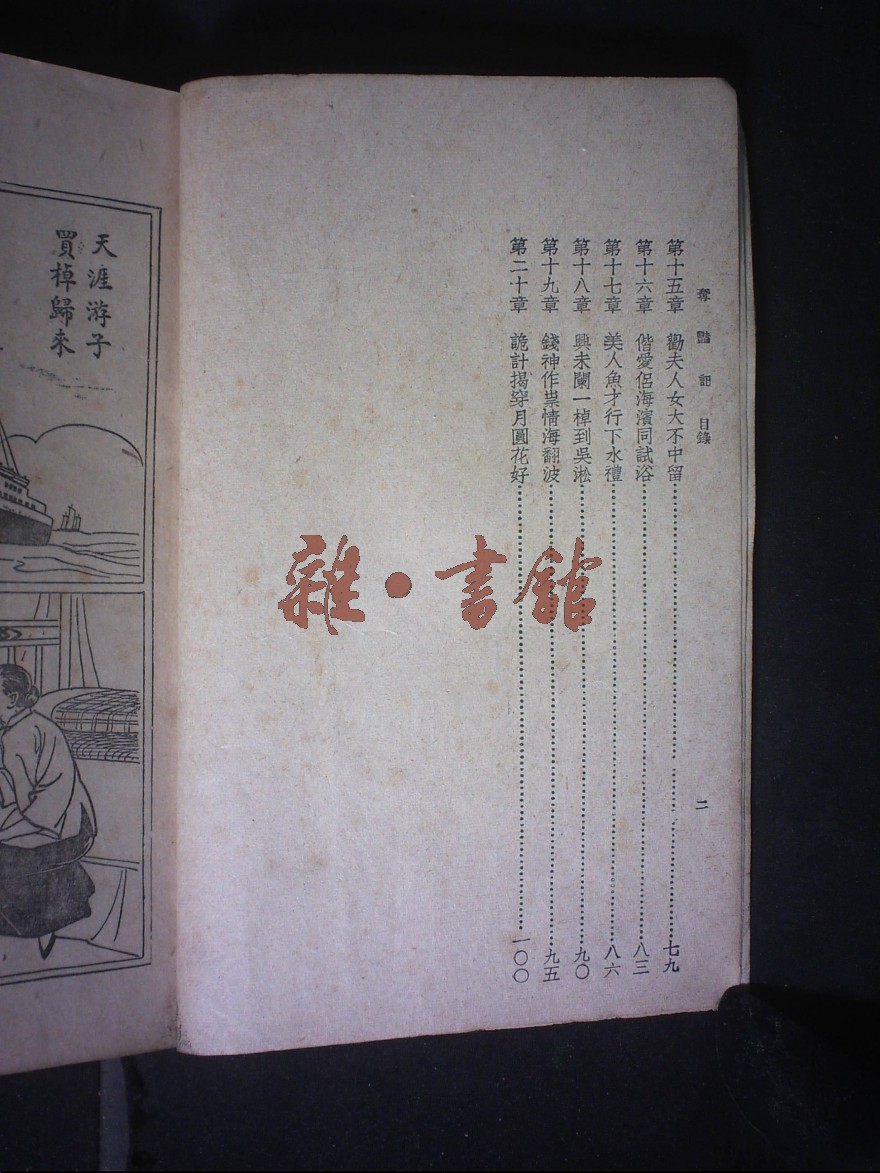 奪豔記 目錄 二
第十五章 勸夫人女大不中留 七九
第十六章 偕愛侶海濱同試浴 八三
第十七章 美人魚才行下水禮 八六
第十八章 興未闌一棹到吳淞 九〇
第十九章 錢神作祟情海翻波 九五
第二十章 詭計揭穿月圓花好 一〇〇
天涯游子
買棹歸來
雜·書館